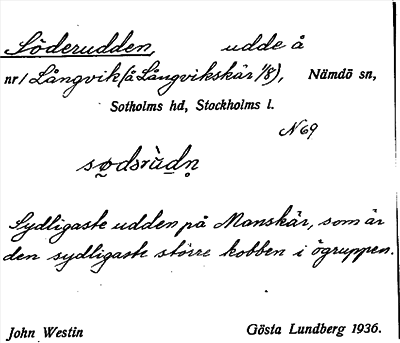 Söderudden, udde å
nr 1 Långvik (å Långvikskär 1/8), Nämdö sn,
Sotholms hd, Stockholms l.
N69
sø̰dsrùdṇ
Sydligaste udden på Manskär, som är
den sydligaste större kobben i ögruppen.
John Westin Gösta Lundberg 1936.